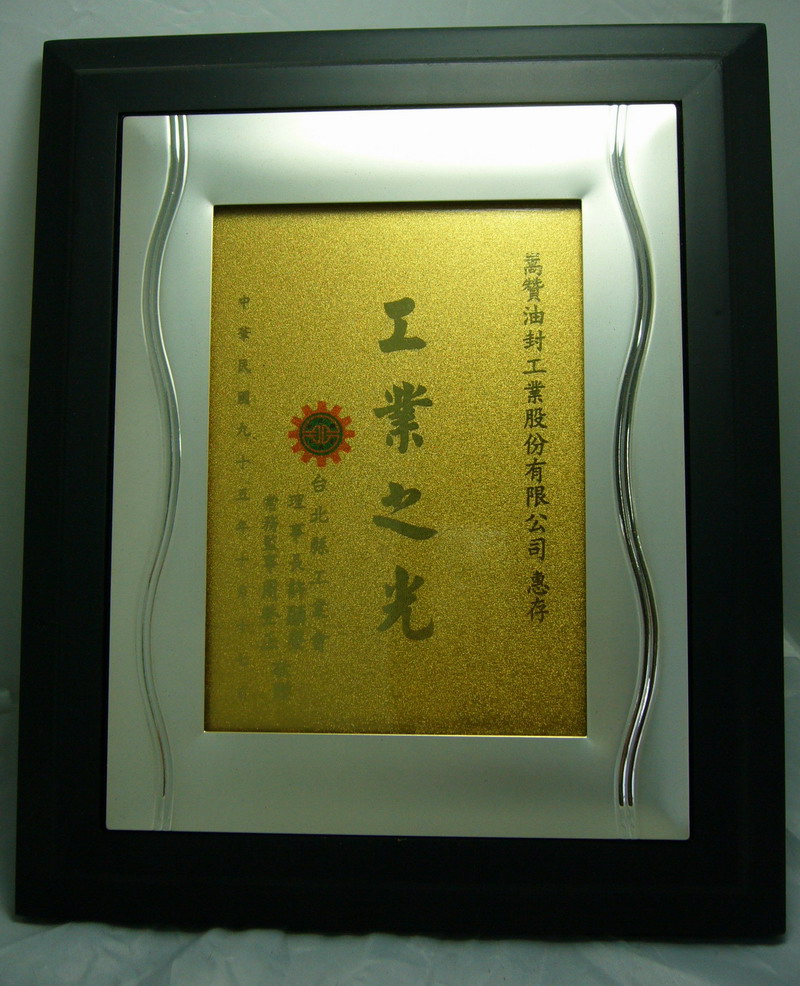 萬贊油封工業股份有限公司 惠存
工業之光
台北縣工業會
理事長許顯榮
常務監事周 敬贈
中華民國九十五年十一月十七日